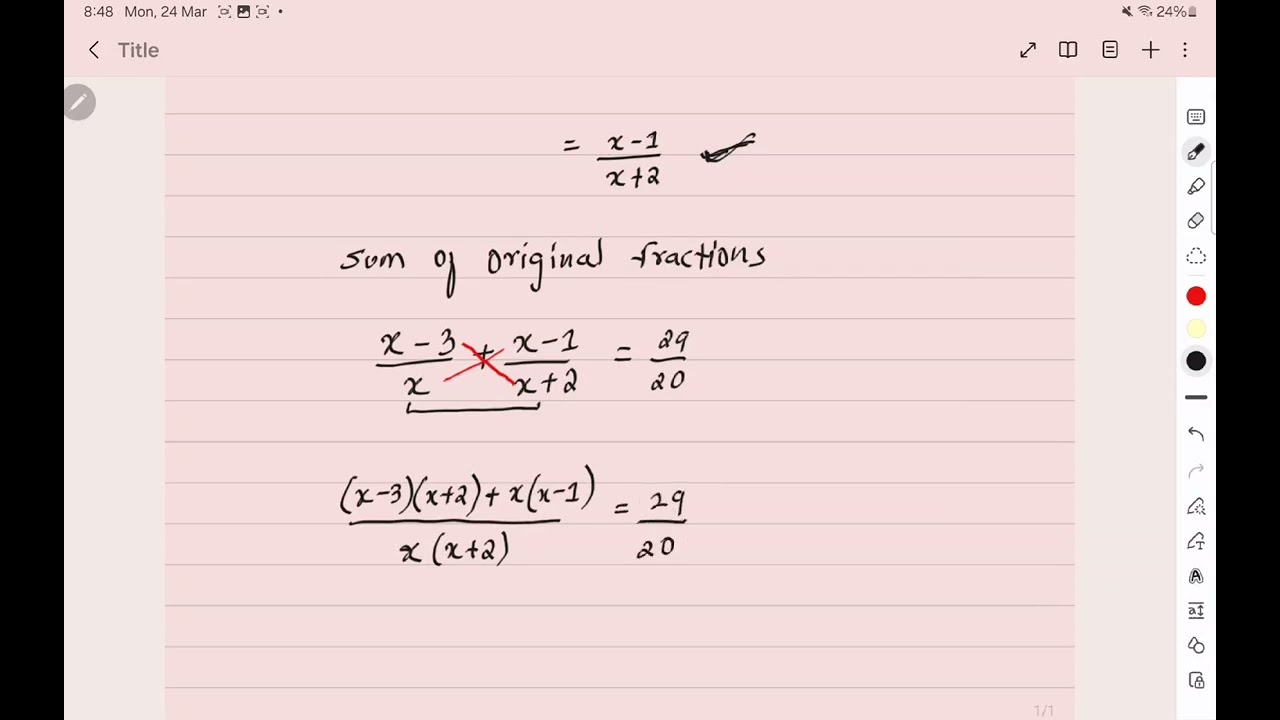 8:48 Mon, 24 Mar 24%
Title
= x-1/x+2
Sum of original fractions
x-3/x + x-1/x+2 = 29/20
(x-3)(x+2)+x(x-1)/x(x+2) = 29/20
1/1